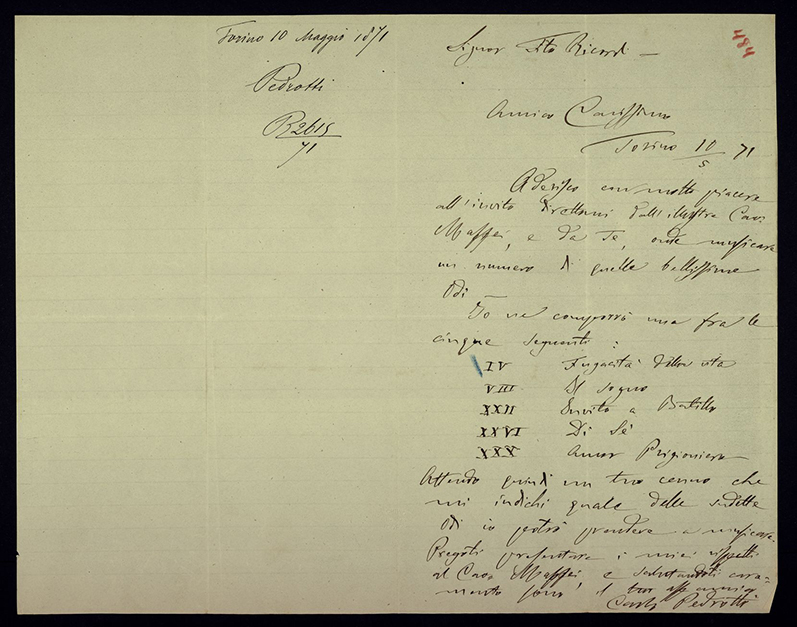 Torino 10 Maggio 1871
Pedrotti
R2615
71
484
Signor Tito Ricordi
Amico Carissimo
Torino 10/5 71
Aderisco con molto piacere
all'invito direttomi dall'illustre Cav.
Maffei, e da Te, onde musicare
un numero di quelle bellissime
Odi
Io ne comporrò una fra le
cinque seguenti:
IV Fugacità della vita
VIII Il sogno
XXII Invito a Batillo
XXVI Di Sè
XXX Amor Prigioniero
Attendo quindi un tuo cenno che
mi indichi quale delle sudette
Odi io potrò prendere a musicare.
Pregoti presentare i miei rispetti
al Cav. Maffei, e salutandoti cara=
mente sono il tuo aff amico
Carlo Pedrotti